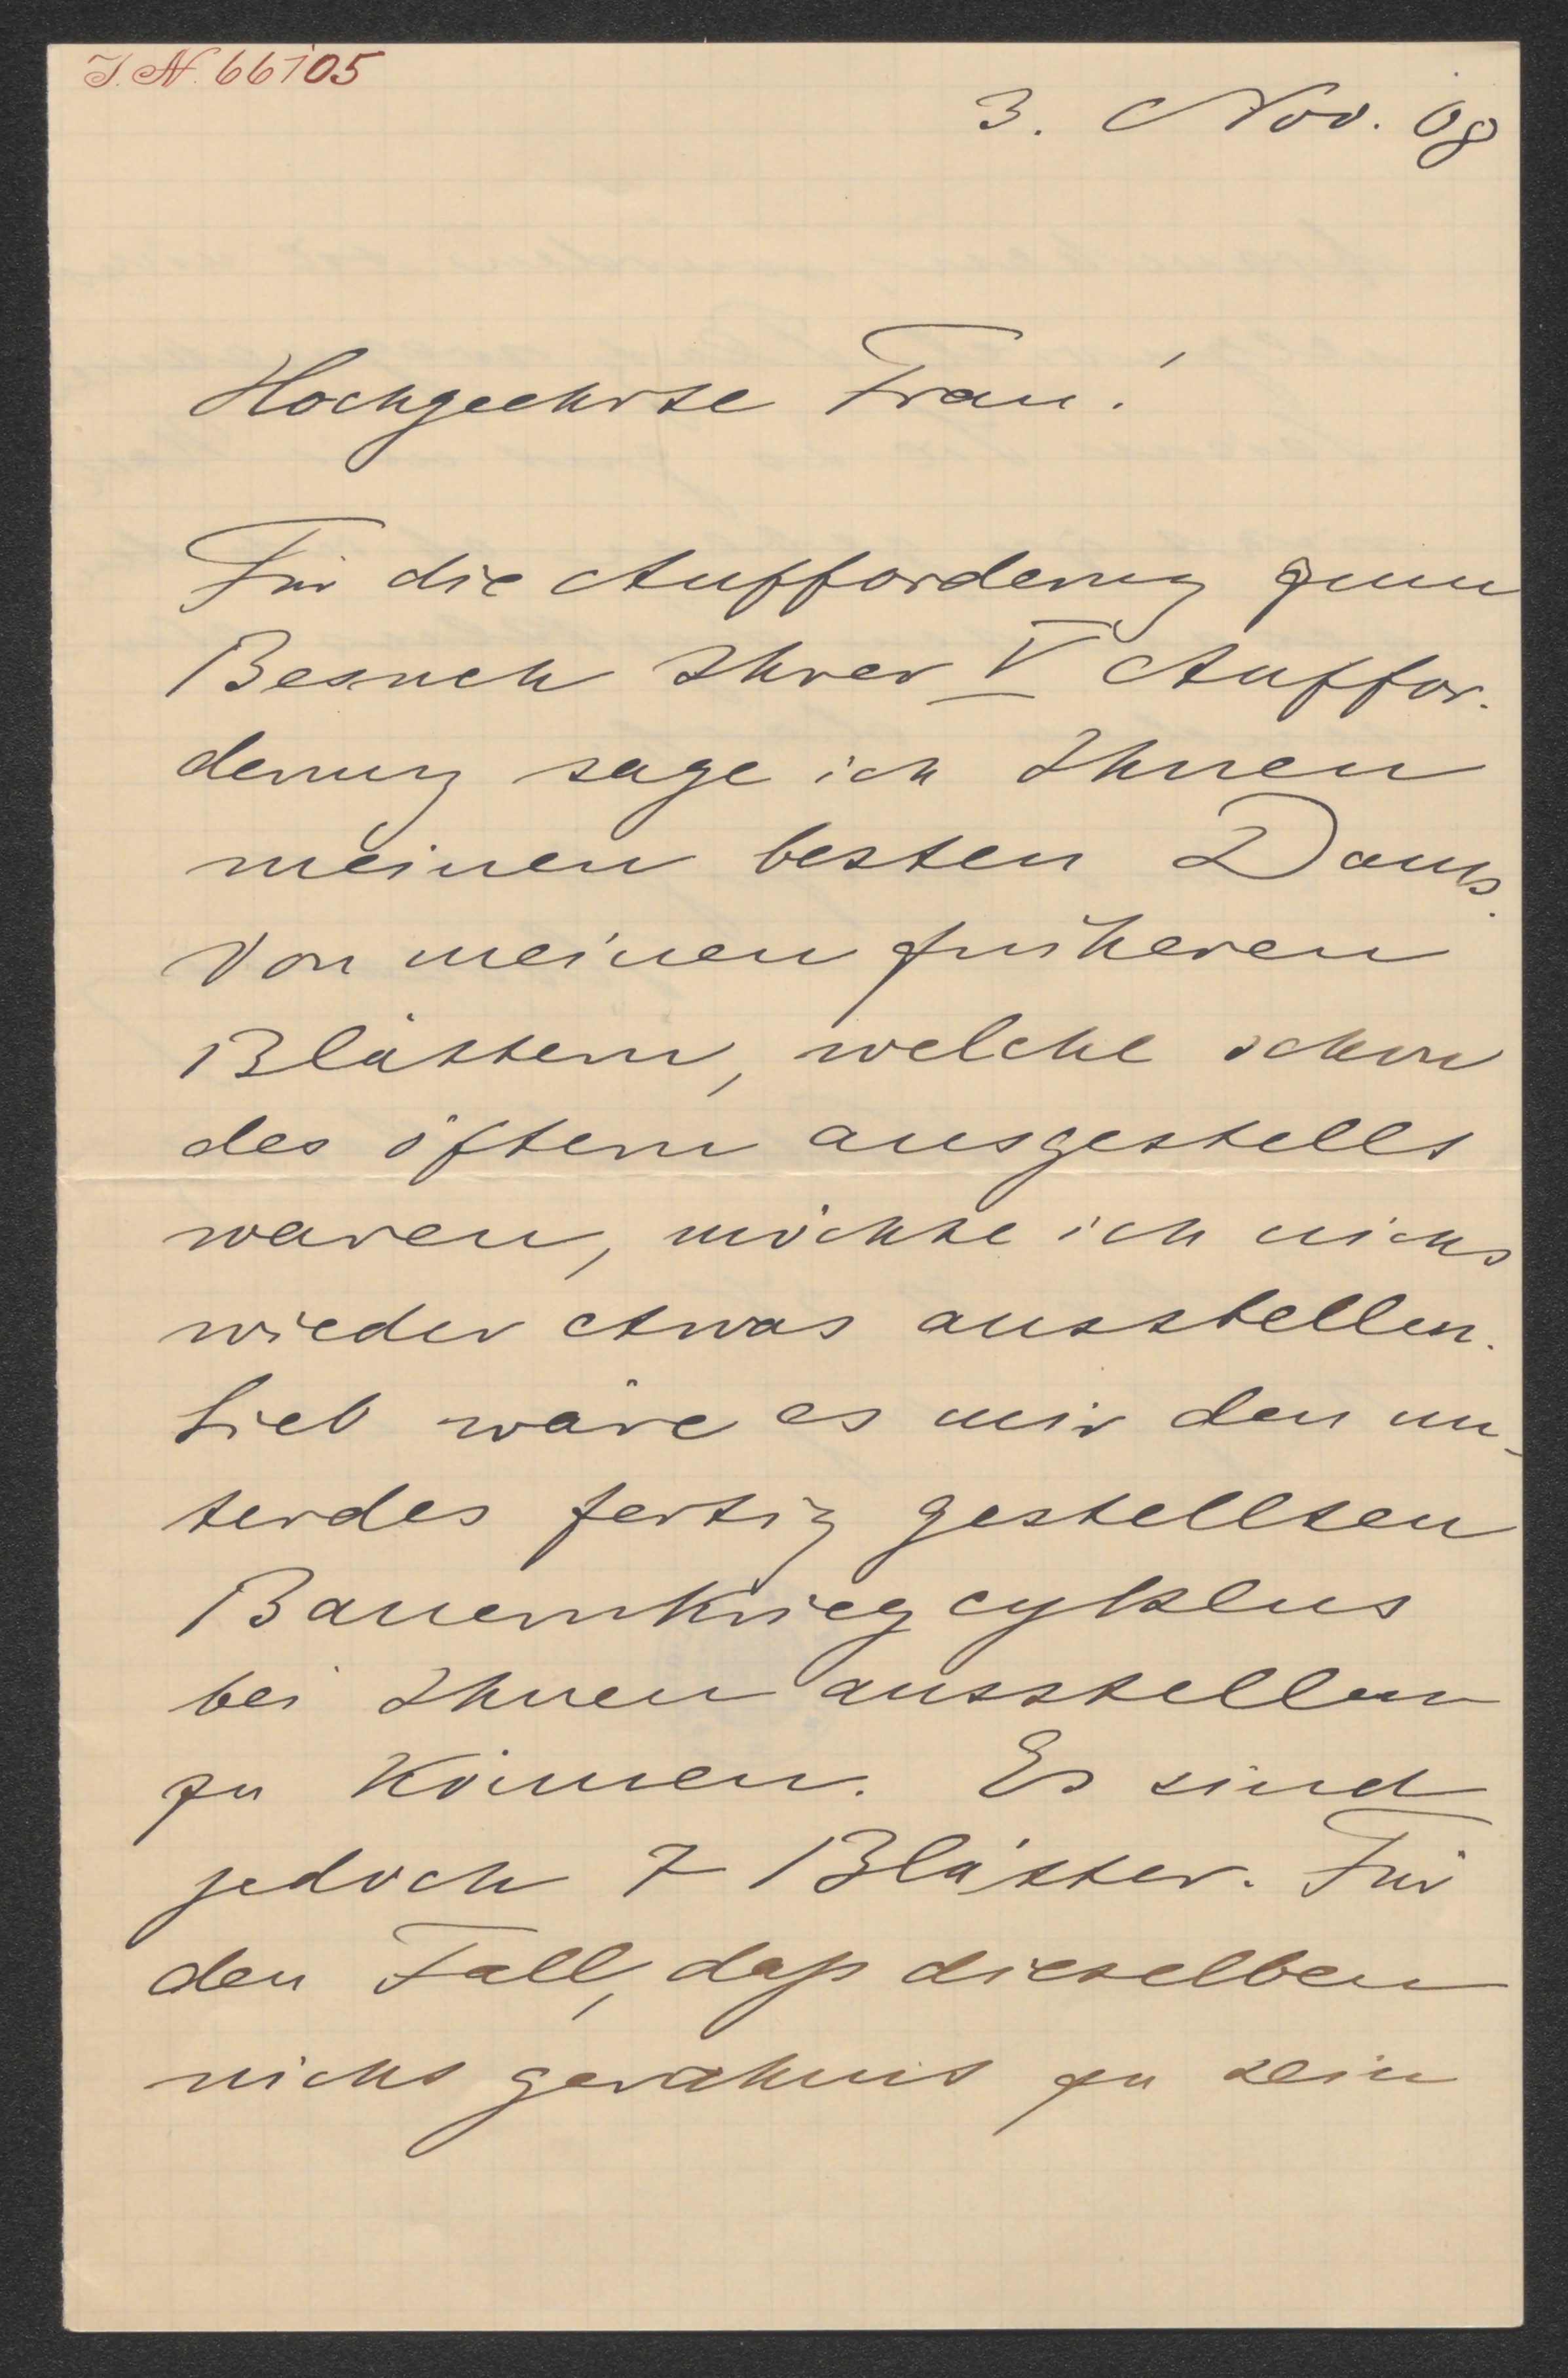 I.N. 66105
3. Nov. 08
Hochgeehrte Frau!
Für die Aufforderung zum
Besuch Ihrer V Auffor-
derung sage ich Ihnen
meinen besten Dank.
Von meinen früheren
Blättern, welche schon
des öftern ausgestellt
waren, möchte ich nicht
wieder etwas ausstellen.
Lieb wäre es mir den un-
terdes fertig gestellten
Bauernkriegcyklus
bei Ihnen ausstellen
zu können. Es sind
jedoch 7 Blätter. Für
den Fall, daß dieselben
nicht gerahmt zu sein